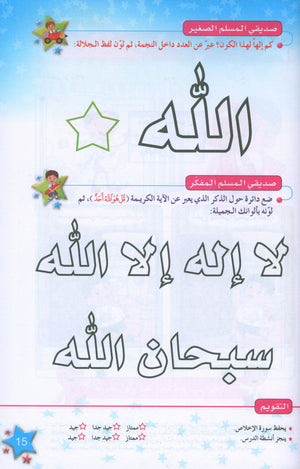 صديقي المسلم الصغير
كم إلهاً لهذا الكون؟ عبر عن العدد داخل النجمة، ثم لوّن لفظ الجلالة:
الله
صديقي المسلم المفكر
ضع دائرة حول الذكر الذي يعبر عن الآية الكريمة (قُلْ هُوَ اللَّهُ أَحَدٌ)، ثم
لوّنه بألوانك الجميلة:
لا إله إلا الله
سبحان الله
التقويم
يحفظ سورة الإخلاص. ممتاز جيد جدا جيد
ينجز أنشطة الدرس ممتاز جيد جدا جيد
15